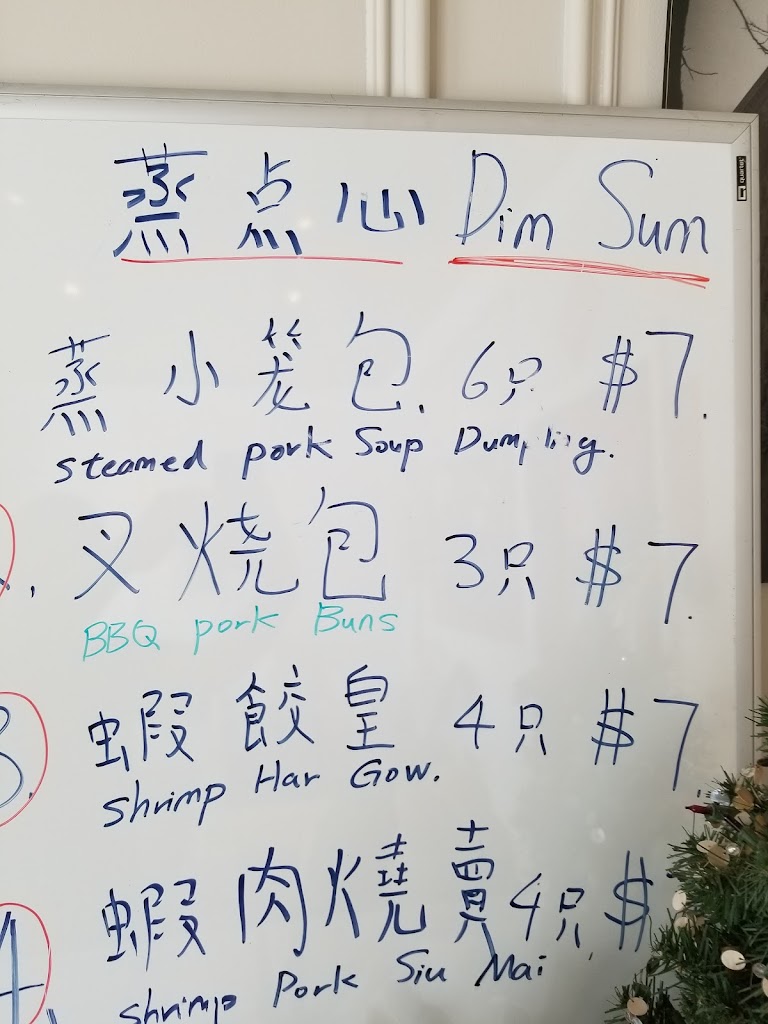 蒸点心 Dim Sum
蒸小笼包. 6只 $7.
steamed pork Soup Dumpling.
叉烧包 3只 $7.
BBQ pork Buns
3. 蝦餃皇 4只 $7.
shrimp Har Gow.
4. 蝦肉燒賣 4只 $
shrimp Pork Siu Mai